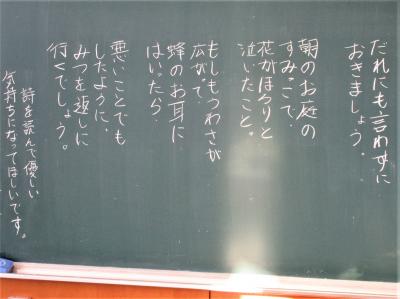 だれにも言わずに
おきましょう。
朝のお庭の
すみっこで、
花がほろりと
泣いたこと。
もしもうわさが
広がって、
蜂のお耳に
はいったら、
悪いことでも
したように、
みつを返しに
行くでしょう。
詩を読んで優しい
気持ちになってほしいです。